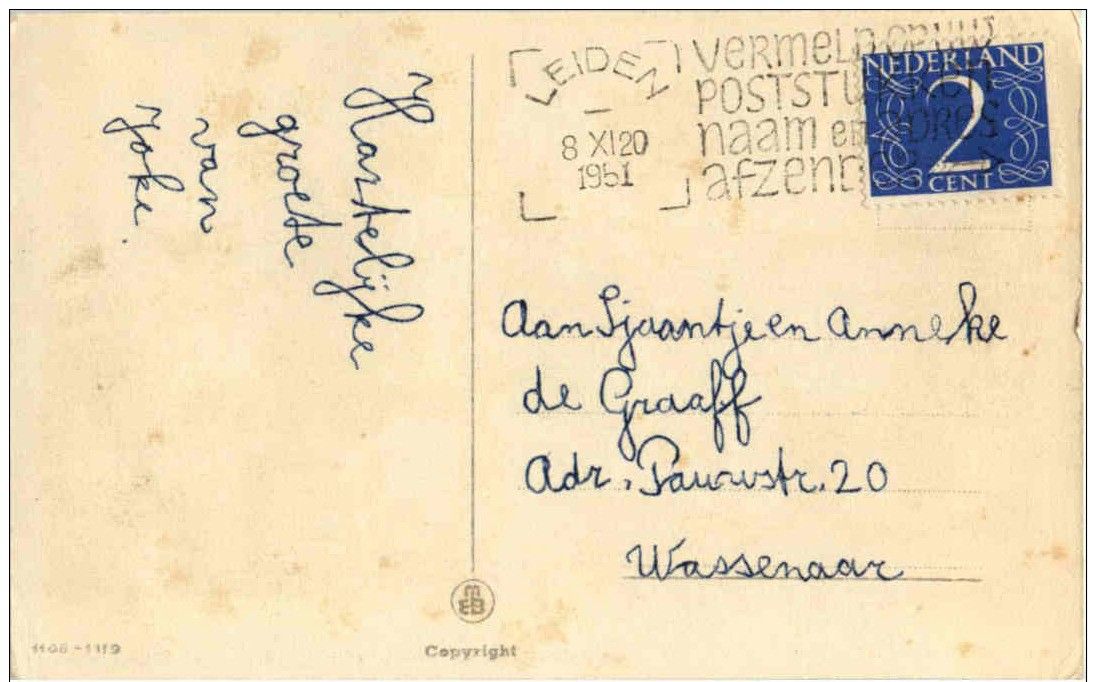 Hartelijke
groete
van
Joke.
LEIDEN
8 XI 20
1951
VERMELD OP UW
POSTSTUKKEN
naam en ADRES
afzender
NEDERLAND
2
CENT
Aan Sjaantje en Anneke
de Graaff
Adr. Pauwstr. 20
Wassenaar
MEB
1106-1119
Copyright